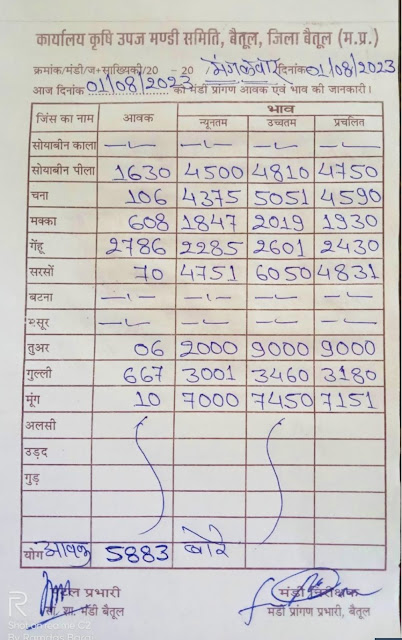 कार्यालय कृषि उपज मण्डी समिति, बैतूल, जिला बैतूल (म.प्र.)
क्रमांक/मंडी/ज+सांख्यिकी/20 - 20 मंगलवार दिनांक 01/08/2023
आज दिनांक 01/08/2023 को मंडी प्रांगण आवक एवं भाव की जानकारी।
जिंस का नाम आवक भाव
न्यूनतम उच्चतम प्रचलित
सोयाबीन काला -- -- -- --
सोयाबीन पीला 1630 4500 4810 4750
चना 106 4375 5051 4590
मक्का 608 1847 2019 1930
गेंहू 2786 2285 2601 2430
सरसों 70 4751 6050 4831
बटना -- -- -- --
सूर -- -- -- --
तुअर 06 2000 9000 9000
गुल्ली 667 3001 3460 3180
मूंग 10 7000 7450 7151
अलसी
उड़द
गुड़
योग आवक 5883 बोरे
प्रभारी मंडी निरीक्षक
सां. शा. मंडी बैतूल मंडी प्रांगण प्रभारी, बैतूल
R
C2
By Ramdas